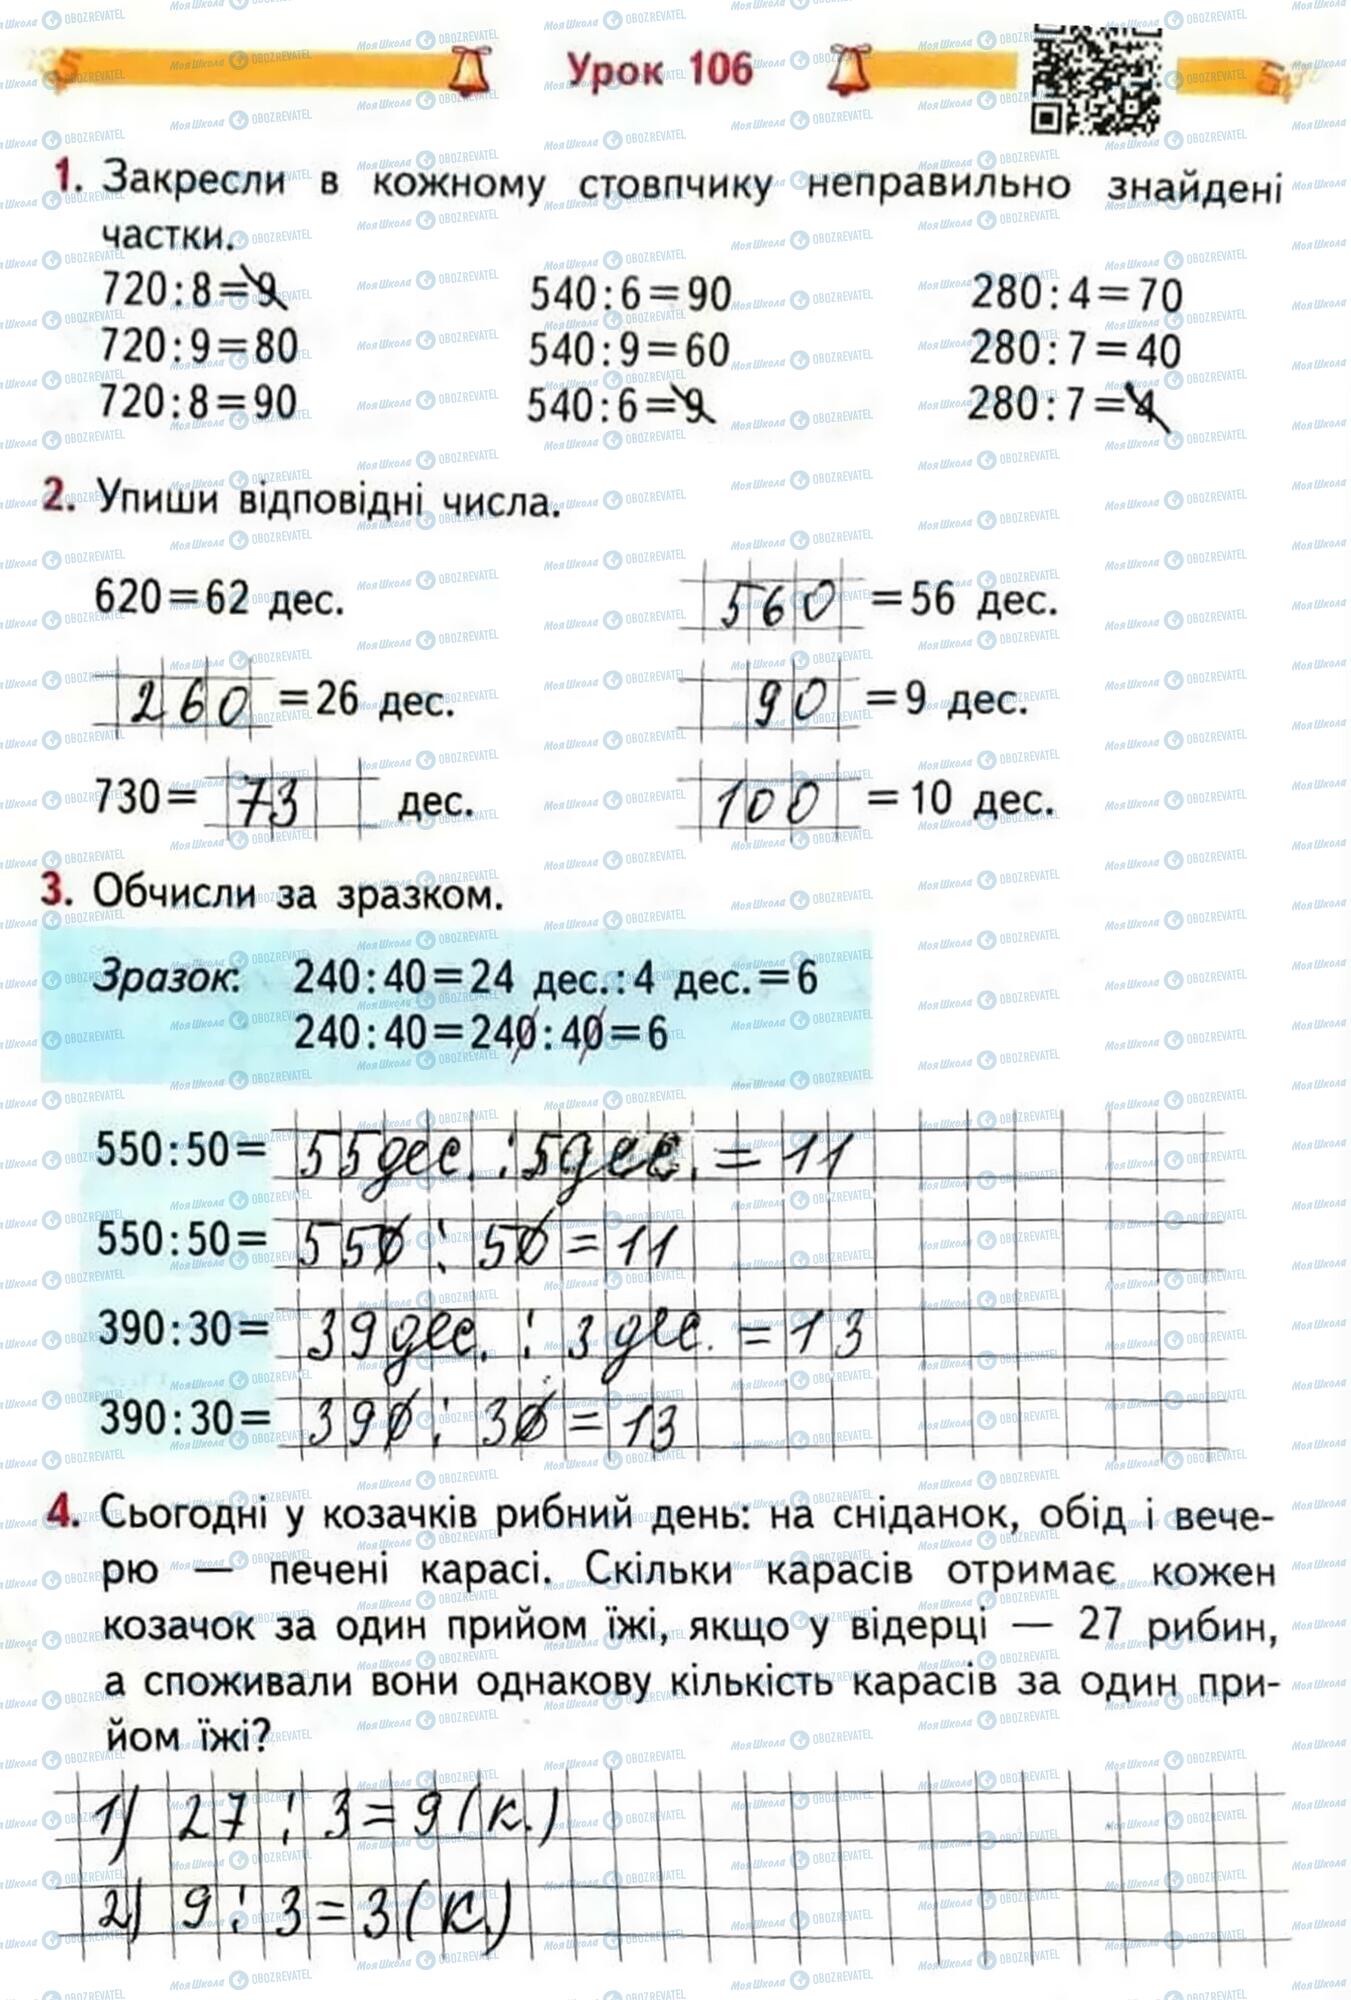 Урок 106
1. Закресли в кожному стовпчику неправильно знайдені
частки.
720:8=9 540:6=90 280:4=70
720:9=80 540:9=60 280:7=40
720:8=90 540:6=9 280:7=4
2. Упиши відповідні числа.
620=62 дес. 560=56 дес.
260=26 дес. 90=9 дес.
730=73 дес. 100=10 дес.
3. Обчисли за зразком.
Зразок: 240:40=24 дес.:4 дес.=6
240:40=240:40=6
550:50=55дес.:5дес.=11
550:50=550:50=11
390:30=39дес.:3дес.=13
390:30=390:30=13
4. Сьогодні у козачків рибний день: на сніданок, обід і вече-
рю — печені карасі. Скільки карасів отримає кожен
козачок за один прийом їжі, якщо у відерці — 27 рибин,
а споживали вони однакову кількість карасів за один при-
йом їжі?
1) 27:3=9(к.)
2) 9:3=3(к.)
МояШкола OBOZREVATEL